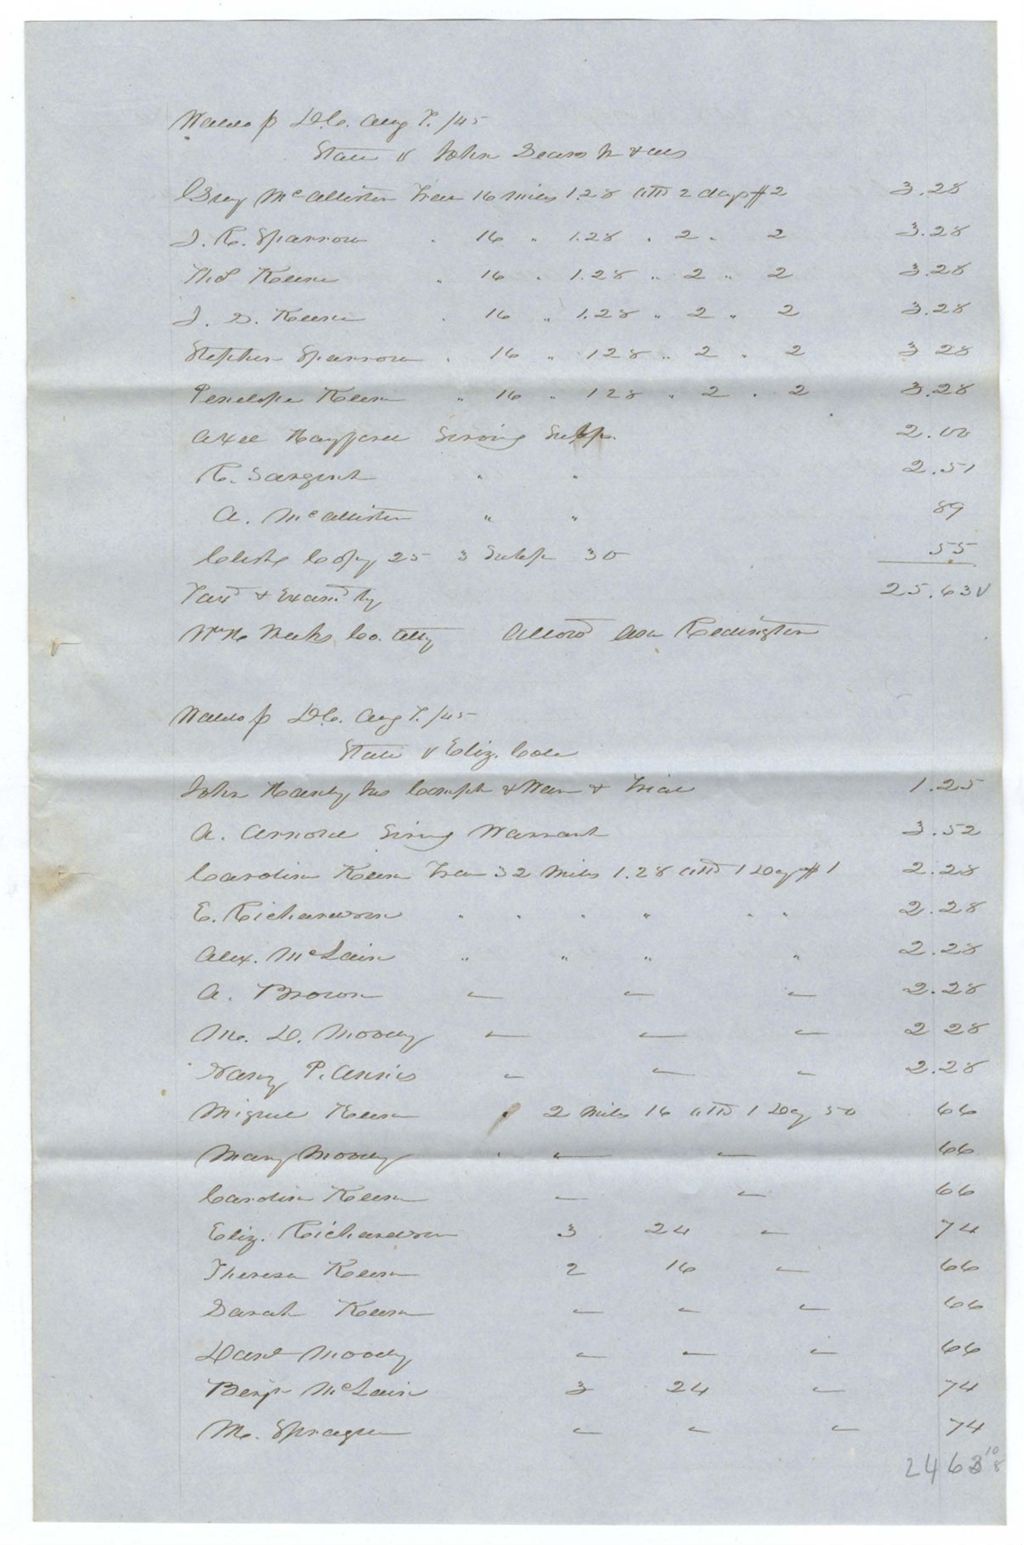 Waldo ss D.C. Aug T. /45
State v John Sears Jr & als
Gray McAllister Trav 16 miles 1.28 attd 2 days $2 3.28
J. R. Sparrow " 16 " 1.28 " 2 " 2 3.28
Keen " 16 " 1.28 " 2 " 2 3.28
J. S. Keen " 16 " 1.28 " 2 " 2 3.28
Stephen Sparrow " 16 " 128 " 2 " 2 3 28
Penelope Keen " 16 " 128 " 2 " 2 3.28
Axel Hayford Serving Subp. 2.00
R. Sargent " " 2.51
A. McAllister " " 89
Clerks Copy 25 3 Subp 30 55
Taxd & Examd by 25.63 √
Wm H Weeks Co. Atty Allowd Asa Redington
Waldo ss D.C. Aug T. /45
State v Eliz. Cole
John Compt & Warr & Trial 1.25
A. Arnold Serving Warrant 3.52
Caroline Keen Trav 32 miles 1.28 attd 1 Day $1 2.28
E. Richardson " " " " " " 2.28
Alex. McLain " " " " 2.28
A. Brown — — — 2.28
M. D. Moody — — — 2 28
Nancy P. Annis — — — 2.28
Keen " 2 miles 16 attd 1 Day 50 66
Mary Moody " — — 66
Caroline Keen — — 66
Eliz. Richardson 3 24 — 74
Theresa Keen 2 16 — 66
Sarah Keen — — — 66
Danl Moody — — — 66
Benj McLain 3 24 — 74
M. Sprague — — — 74